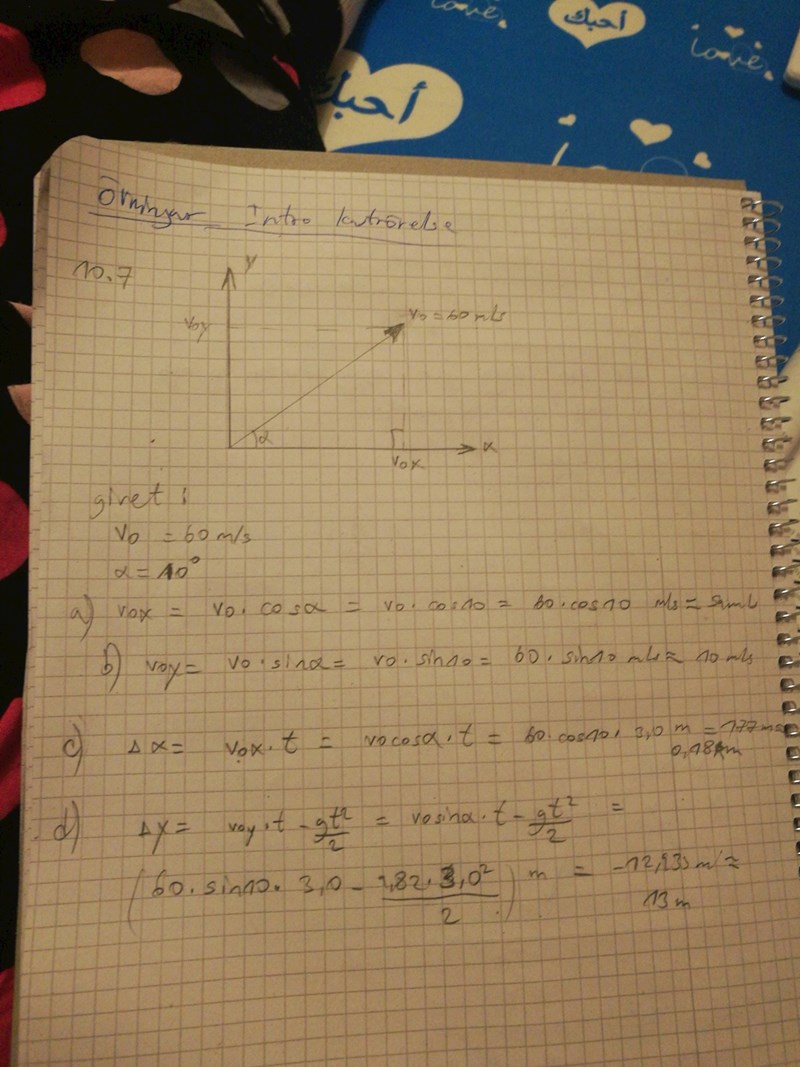 love.
أحبك
love.
أحبك
Övningar Intro
10.7
y
v0y
v0 = 60 m/s
α
x
v0x
givet :
v0 = 60 m/s
α = 10°
a) v0x = v0 · cosα = v0 · cos10 = 60 · cos10 m/s ≈
b) v0y = v0 · sinα = v0 · sin10 = 60 · sin10 m/s ≈ 10 m/s
c) Δx = v0x · t = v0cosα · t = 60 · cos10 · 3,0 m = 177 m ≈
0,18km
d) Δy = v0y · t - gt²/2 = v0sinα · t - gt²/2 =
(60 · sin10 · 3,0 - 9,82 · 3,0²/2) m = m ≈
13 m